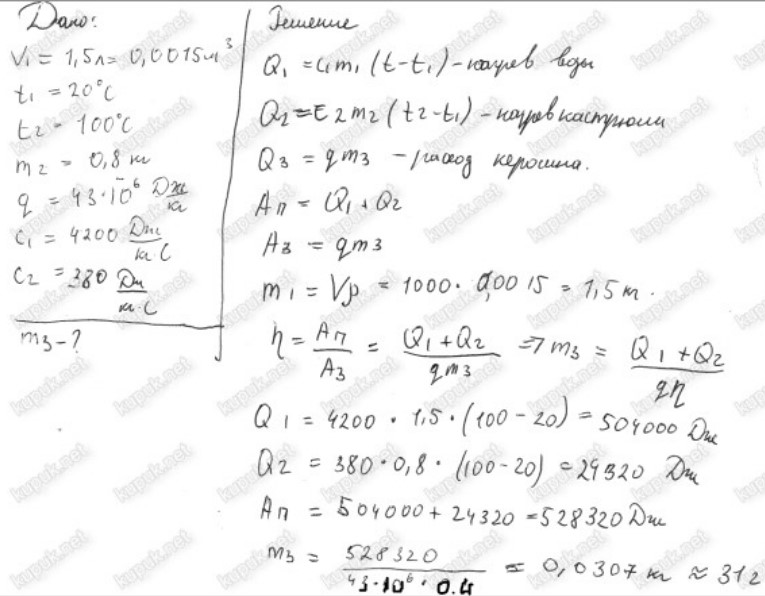 Дано:
V₁ = 1,5л = 0,0015м³
t₁ = 20°C
t₂ = 100°C
m₂ = 0,8 кг
q = 43·10⁶ Дж/кг
c₁ = 4200 Дж/кг·С
c₂ = 380 Дж/кг·С
m₃ - ?
Решение
Q₁ = c₁m₁(t-t₁) - нагрев воды
Q₂ = c₂m₂(t₂-t₁) - нагрев кастрюли
Q₃ = qm₃ - расход керосина.
Aп = Q₁ + Q₂
Aз = qm₃
m₁ = Vρ = 1000 · 0,0015 = 1,5 кг.
η = Aп/Aз = (Q₁+Q₂)/(qm₃) ⇒ m₃ = (Q₁+Q₂)/(qη)
Q₁ = 4200 · 1,5 · (100 - 20) = 504000 Дж
Q₂ = 380 · 0,8 · (100-20) = 24320 Дж
Aп = 504000 + 24320 = 528320 Дж
m₃ = 528320/(43·10⁶ · 0.4) = 0,0307 кг ≈ 31г
kupuk.net